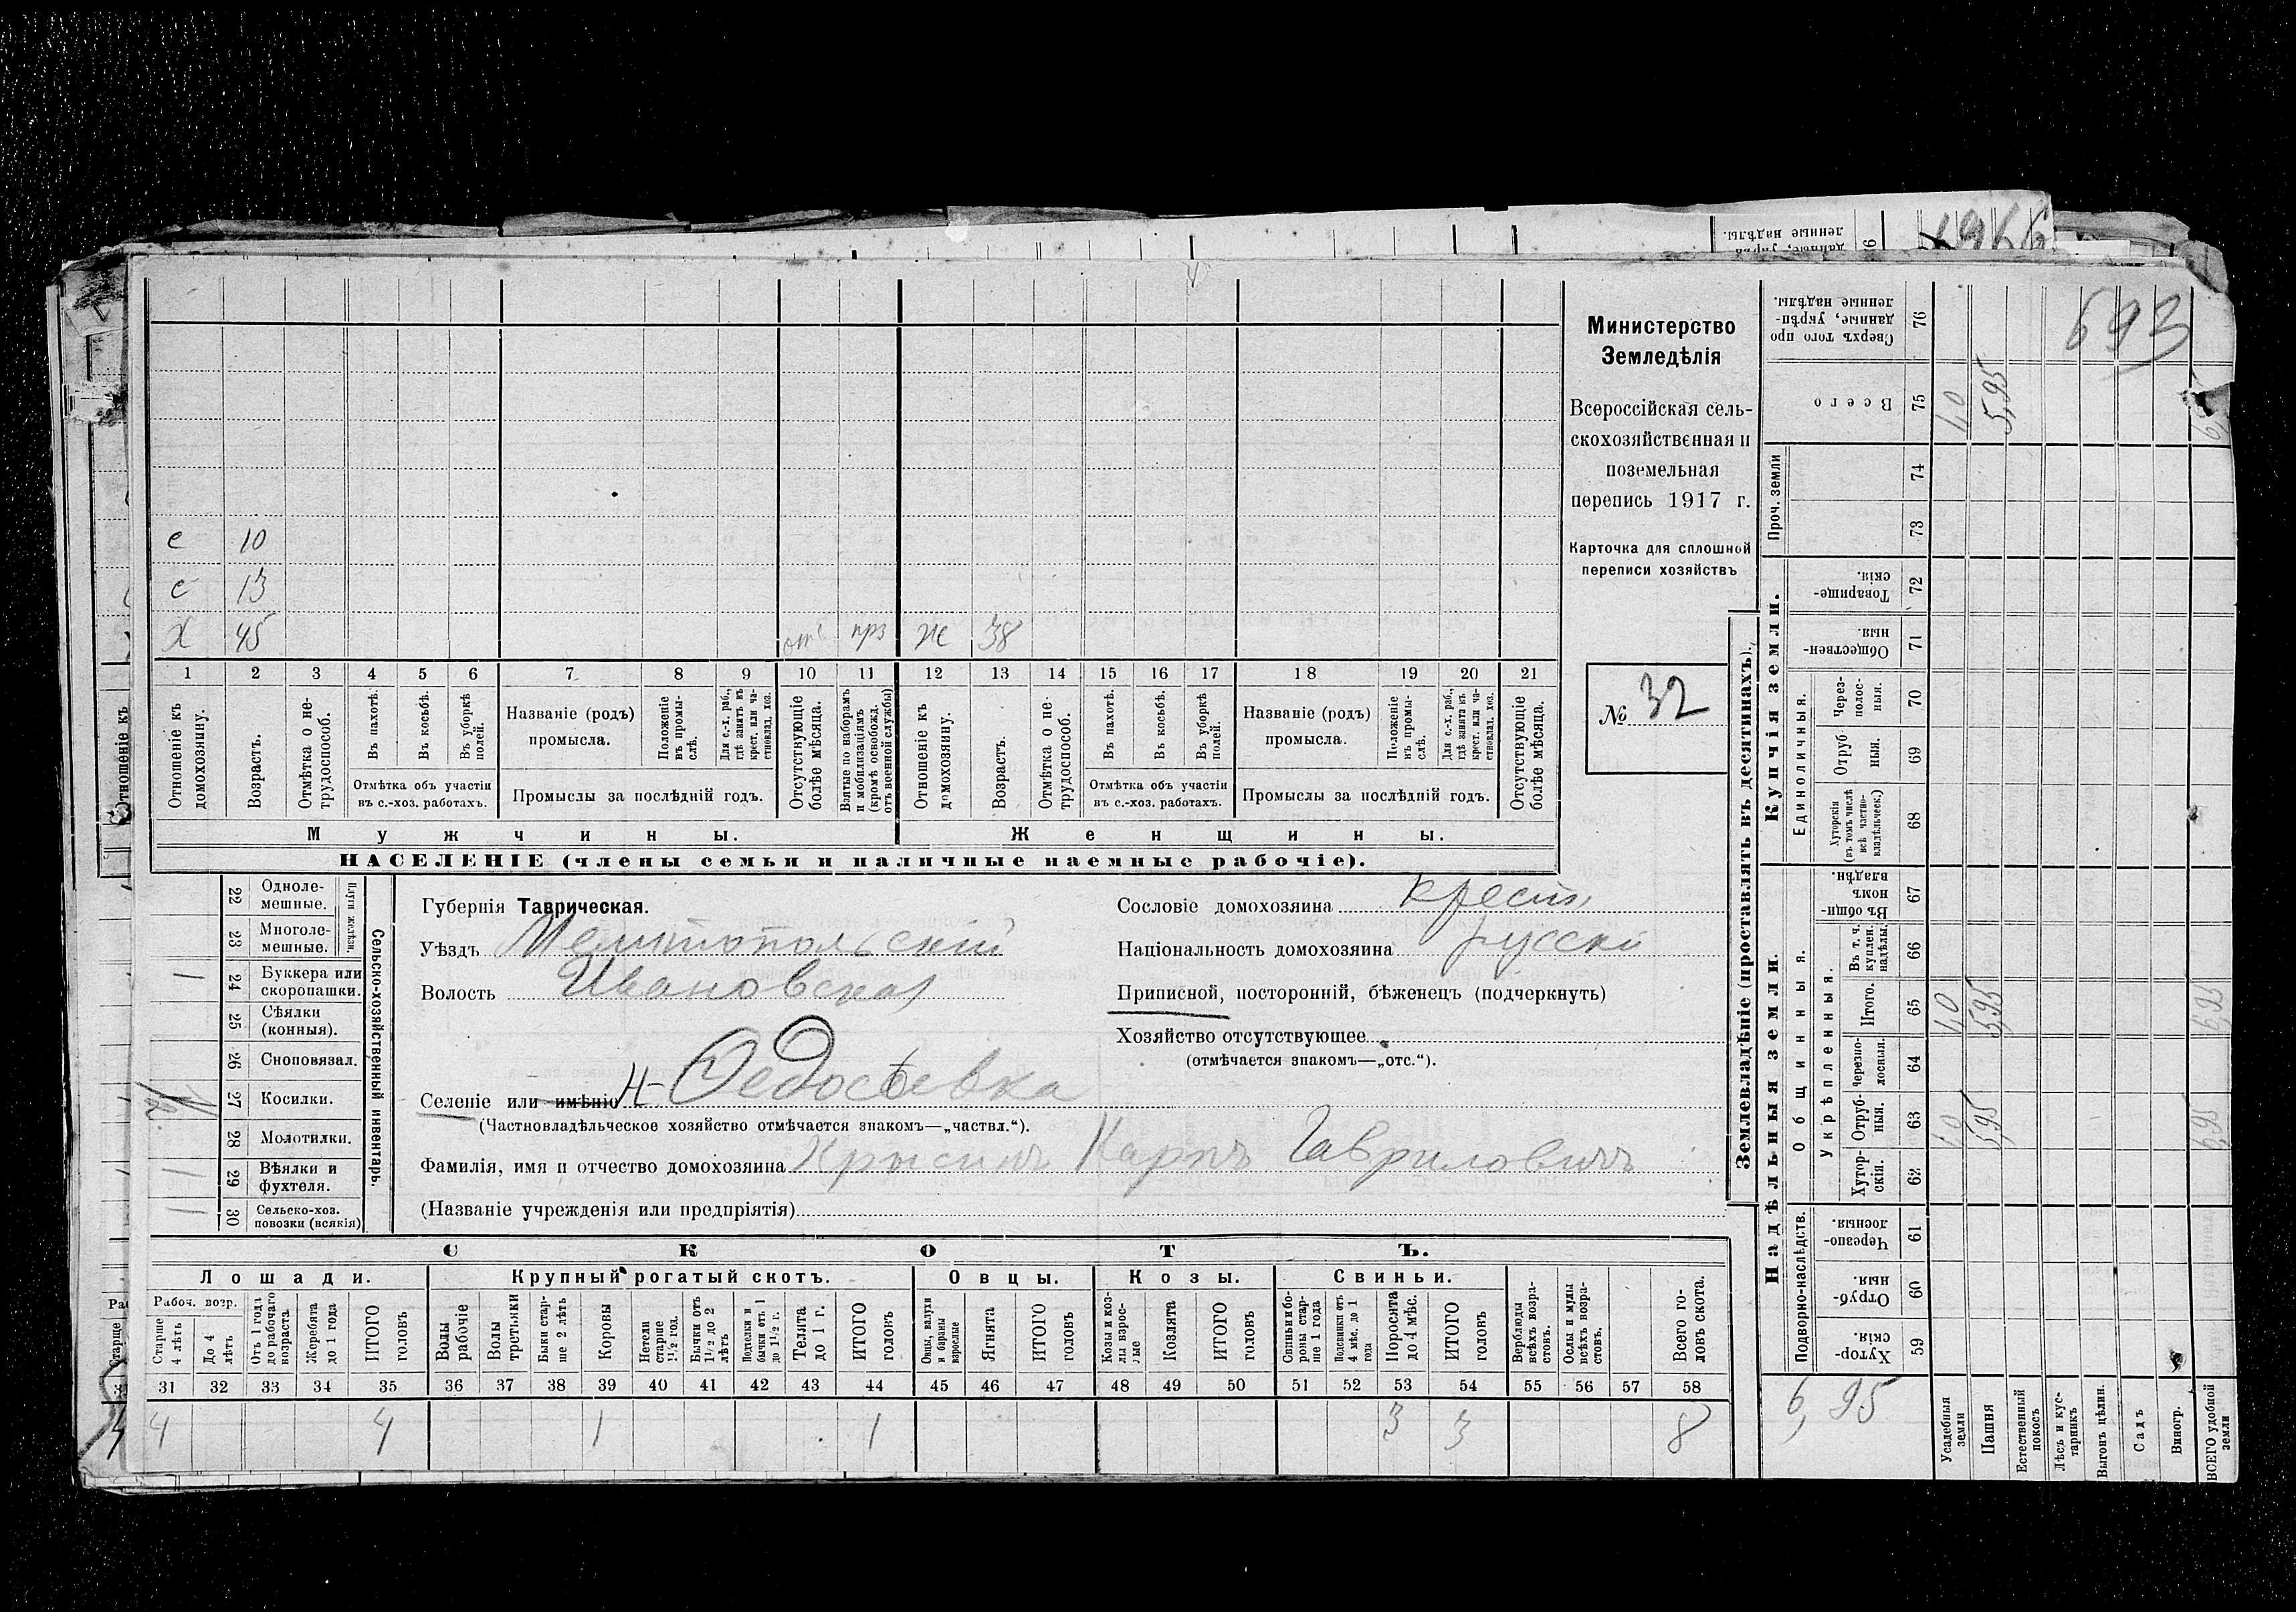 Министерство
Земледѣлія
Всероссійская сель-
скохозяйственная и
поземельная
перепись 1917 г.
Карточка для сплошной
переписи хозяйствъ
№ 32
693
с 10
с 13
Х 45 отс прз ж 38
1 2 3 4 5 6 7 8 9 10 11 12 13 14 15 16 17 18 19 20 21
Отношеніе къ домохозяину.
Возрастъ.
Отмѣтка о не-трудоспособ.
Въ пахотѣ.
Въ косьбѣ.
Въ уборкѣ полей.
Отмѣтка объ участіи
въ с.-хоз. работахъ.
Названіе (родъ)
промысла.
Положеніе въ промы-слѣ.
Для с.-х. раб., гдѣ занятъ въ крест. или ча-стновлад. хоз.
Промыслы за послѣдній годъ.
Отсутствующіе болѣе мѣсяца.
Взятые по наборамъ и мобилизаціямъ (кромѣ освобожд. отъ военной службы)
Отношеніе къ домохозяину.
Возрастъ.
Отмѣтка о не-трудоспособ.
Въ пахотѣ.
Въ косьбѣ.
Въ уборкѣ полей.
Отмѣтка объ участіи
въ с.-хоз. работахъ.
Названіе (родъ)
промысла.
Положеніе въ промы-слѣ.
Для с.-х. раб., гдѣ занята въ крест. или ча-стновлад. хоз.
Промыслы за послѣдній годъ.
Отсутствующіе болѣе мѣсяца.
Мужчины. Женщины.
НАСЕЛЕНІЕ (члены семьи и наличные наемные рабочіе).
Сельско-хозяйственный инвентарь.
Плуги желѣзн.
22 Одноле-мешные.
23 Многоле-мешные.
24 Буккера или скоропашки. 1
25 Сѣялки (конныя).
26 Сноповязал.
27 Косилки.
28 Молотилки.
29 Вѣялки и фухтеля. 1
30 Сельско-хоз. повозки (всякія) 1
Губернія Таврическая.
Уѣздъ Мелитопольскій
Волость Ивановская
Селеніе или имѣніе Н-Федосѣевка
(Частновладѣльческое хозяйство отмѣчается знакомъ—„частвл.“).
Фамилія, имя и отчество домохозяина Крысинъ Карпъ Гавриловичъ
(Названіе учрежденія или предпріятія)
Сословіе домохозяина крест.
Національность домохозяина русскій
Приписной, посторонній, бѣженецъ (подчеркнуть)
Хозяйство отсутствующее
(отмѣчается знакомъ—„отс.“).
СКОТЪ.
Лошади. Крупный рогатый скотъ. Овцы. Козы. Свиньи.
Рабоч. возр.
Старше 4 лѣтъ
До 4 лѣтъ
Отъ 1 года до рабочаго возраста
Жеребята до 1 года
ИТОГО головъ
Волы рабочіе
Волы третьяки
Быки стар-ше 2 лѣтъ
Коровы
Нетели старше 1½ год.
Бычки отъ 1½ до 2 лѣтъ
Подтелки и бычки отъ 1 до 1½ г.
Телята до 1 г.
ИТОГО головъ
Овцы, валухи и бараны взрослые
Ягнята
ИТОГО головъ
Козы и коз-лы взрос-лые
Козлята
ИТОГО головъ
Свиньи и бо-ровы стар-ше 1 года
Подсвинки отъ 4 мѣс. до 1 года
Поросята до 4 мѣс.
ИТОГО головъ
Верблюды всѣхъ возра-стовъ.
Ослы и мулы всѣхъ возра-стовъ.
Всего го-ловъ скота.
31 32 33 34 35 36 37 38 39 40 41 42 43 44 45 46 47 48 49 50 51 52 53 54 55 56 57 58
4 4 1 1 3 3 8
Землевладѣніе (проставлять въ десятинахъ).
Надѣльныя земли. Купчія земли. Проч. земли
Подворно-наслѣдств.
Общинныя.
Укрѣпленныя.
Единоличныя.
59 Хутор-скія.
60 Отруб-ныя.
61 Черезпо-лосныя.
62 Хутор-скія.
63 Отруб-ныя.
64 Черезпо-лосныя.
65 Итого.
66 Въ т. ч. куплен. надѣлы.
67 Въ общин-номъ владѣн.
68 Хуторскія (въ томъ числѣ всѣ частно-владѣльческ.)
69 Отруб-ныя.
70 Через-полос-ныя.
71 Обществен-ныя.
72 Товарище-скія.
73
74
75 Всего
76 Сверхъ того про-данные, укрѣп-ленные надѣлы.
6,95
Усадебныя земли 1,0 1,0 1,0
Пашня 5,95 5,95 5,95
Естественный покосъ
Лѣсъ и кус-тарникъ
Выгонъ цѣлин.
Садъ
Виногр.
ВСЕГО удобной земли 6,95 6,95